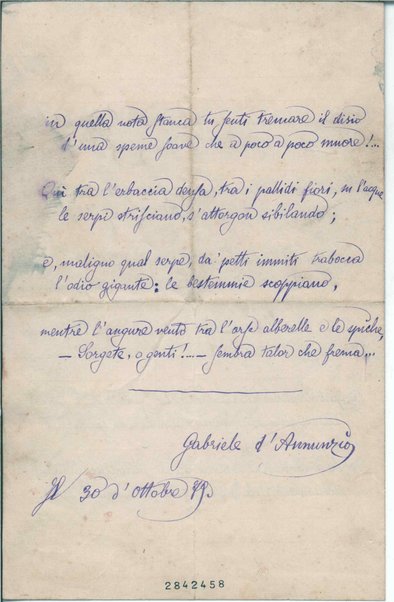 in quella nota stanca tu senti tremare il disio
d'una speme soave che a poco a poco muore!...
Qui tra l'erbaccia densa, tra i pallidi fiori, su l'acque
le serpi strisciano, s'attorgon sibilando;
e, maligno qual serpe, da' petti immiti trabocca
l'odio gigante: le bestemmie scoppiano,
mentre l'augure vento tra l'arse alberelle e le spiche,
— Sorgete, o genti!.... — sembra talor che frema...
Gabriele d'Annunzio
30 d'ottobre 79.
2842458